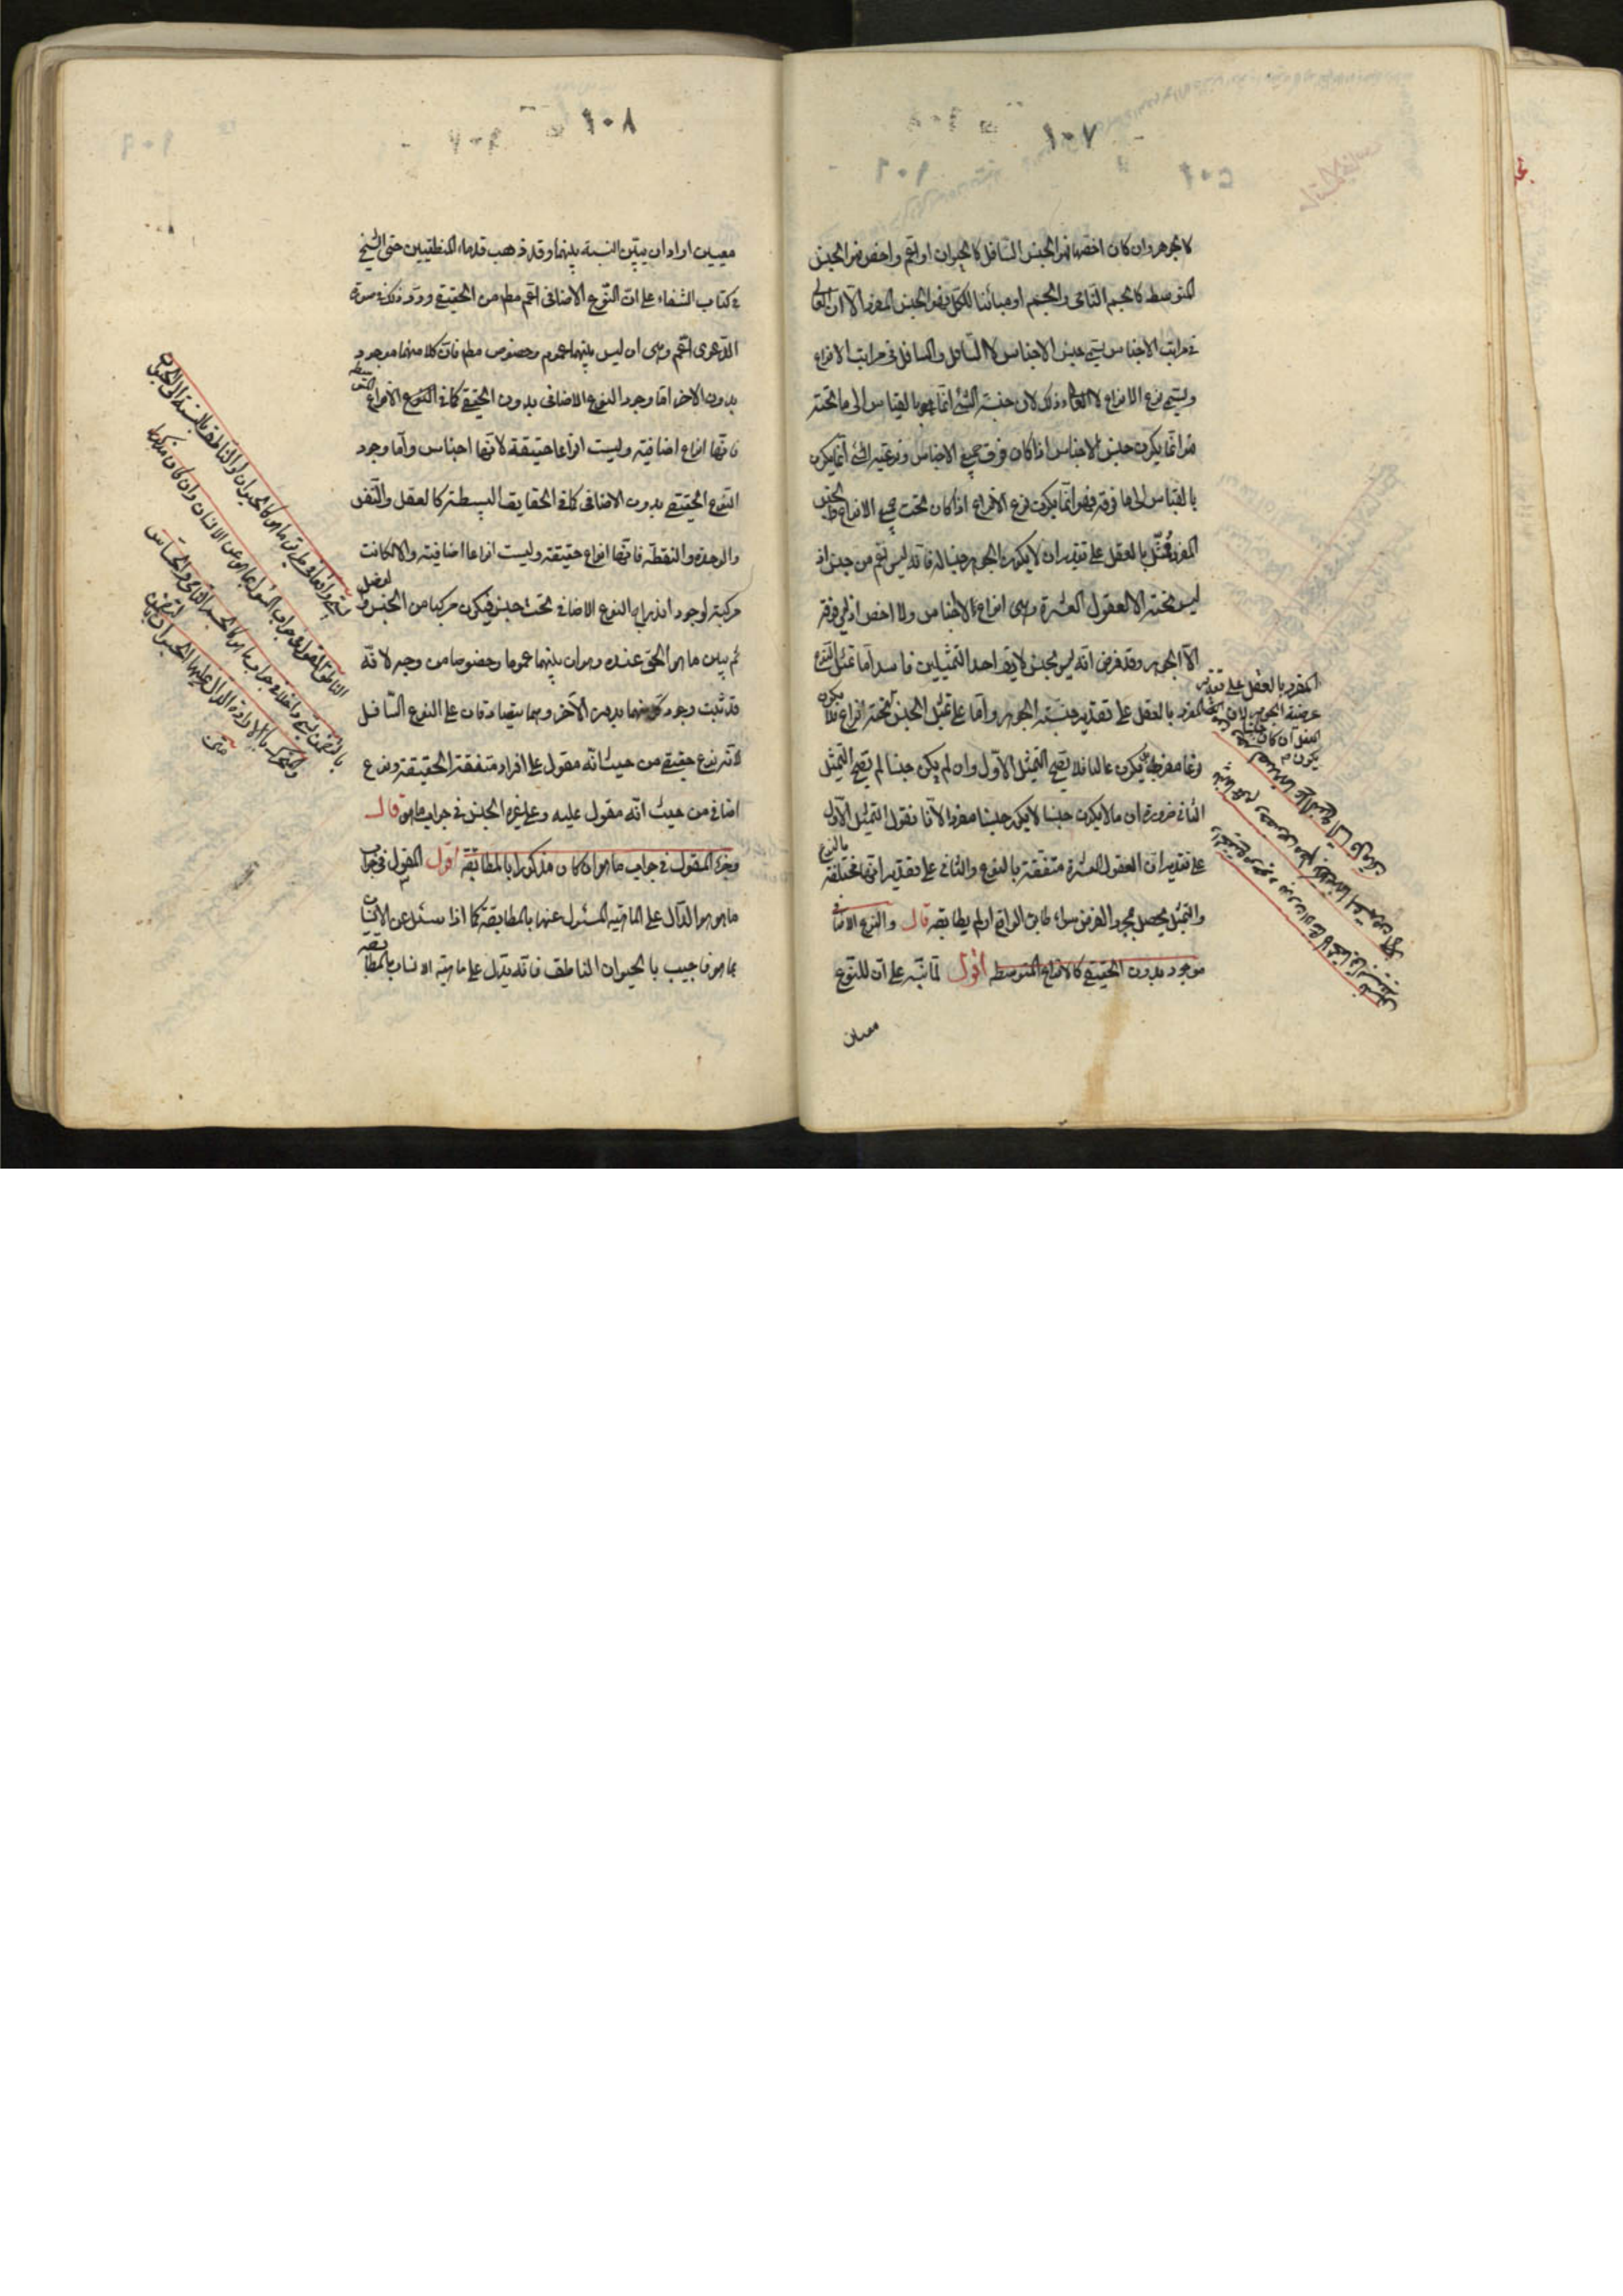 كالجوهر وان كان اخصها فهو الجنس السافل كالحيوان او اعم واخص فهو الجنس
المتوسط كالجسم النامى والجسم او مبائنا للكل فهو الجنس المفرد الا ان العالى
فى مراتب الاجناس يسمى جنس الاجناس لا السافل والسافل فى مراتب الانواع
ويسمى نوع الانواع لا العالى وذلك لان جنسية الشئ انما هو بالقياس الى ما تحته
فهو انما يكون جنس الاجناس اذا كان فوق جميع الاجناس ونوعية الشئ انما يكون
بالقياس الى ما فوقه فهو انما يكون نوع الانواع اذا كان تحت جميع الانواع والجنس
المفرد مُثّل بالعقل على تقدير ان لا يكون الجوهر جنسا له فانه ليس اعم من جنس اذ
ليس تحته الا العقول العشرة وهى انواع لا اجناس ولا اخص اذ ليس فوقه
الا الجوهر وقد فرض انه ليس بجنس لا يق احد التمثيلين فاسد اما تمثيل النوع
المفرد بالعقل على تقدير جنسية الجوهر واما على تمثيل الجنس تحته انواع فلا يكون
نوعا مفردا بل يكون عاليا فلا يصح التمثيل الاول وان لم يكن جنسا لم يصح التمثيل
الثانى ضرورة ان ما لا يكون جنسا لا يكون جنسا مفردا لانا نقول التمثيل الاول
على تقدير ان العقول العشرة متفقة بالنوع والثانى على تقدير انها مختلفة
بالنوع
والتمثيل يحصل بمجرد الفرض سواء طابق الواقع او لم يطابقه قال والنوع الاضافى
موجود بدون الحقيقى كالانواع المتوسطة اقول لما نبه على ان للنوع
معنيان
المفرد بالعقل على تقدير
معنيين اراد ان يبين النسبة بينهما وقد ذهب قدماء المنطقيين حتى الشيخ
فى كتاب الشفاء على ان النوع الاضافى اعم مطم من الحقيقى ورد ذلك فى صورة
الدعوى اعم وهى ان ليس بينهما عموم وخصوص مطم فان كلا منهما موجود
بدون الاخر اما وجود النوع الاضافى بدون الحقيقى كما فى النوع الانواع المتوسطة
فانها انواع اضافية وليست انواعا حقيقة لانها اجناس واما وجود
النوع الحقيقى بدون الاضافى كما فى الحقايق البسيطة كالعقل والنفس
والوحدة والنقطة فانها انواع حقيقة وليست انواعا اضافية والا لكانت
مركبة لوجود اندراج النوع الاضافى تحت جنس فيكون مركبا من الجنس والفصل
ثم بين ما هو الحق عنده وهو ان بينهما عموما وخصوصا من وجه لانه
قد ثبت وجود كل منهما بدون الآخر وهما يتصادقان على النوع السافل
لانه نوع حقيقى من حيث انه مقول على افراد متفقة الحقيقة ونوع
اضافى من حيث انه مقول عليه وعلى غيره الجنس فى جواب ما هو قال
وجزء المقول فى جواب ما هو ان كان مذكورا بالمطابقة اقول المقول فى جواب
ما هو هو الدال على الماهية المسئول عنها بالمطابقة كما اذا سئل عن الانسان
بما هو فاجيب بالحيوان الناطق فانه يدل على ماهية الانسان بالمطابقة
يسمى واقعا فى طريق ما هو كالحيوان او الناطق بالنسبة الى الحيوان
الناطق المقول فى جواب السؤال بما هو عن الانسان وان كان مذكورا
بالتضمن يسمى داخلا فى جواب ما هو كالجسم النامى والحساس
والمتحرك بالارادة الدال عليها الحيوان بالتضمن
متن